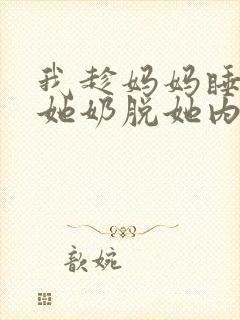 我趁妈妈睡
她奶脱她内
歆婉